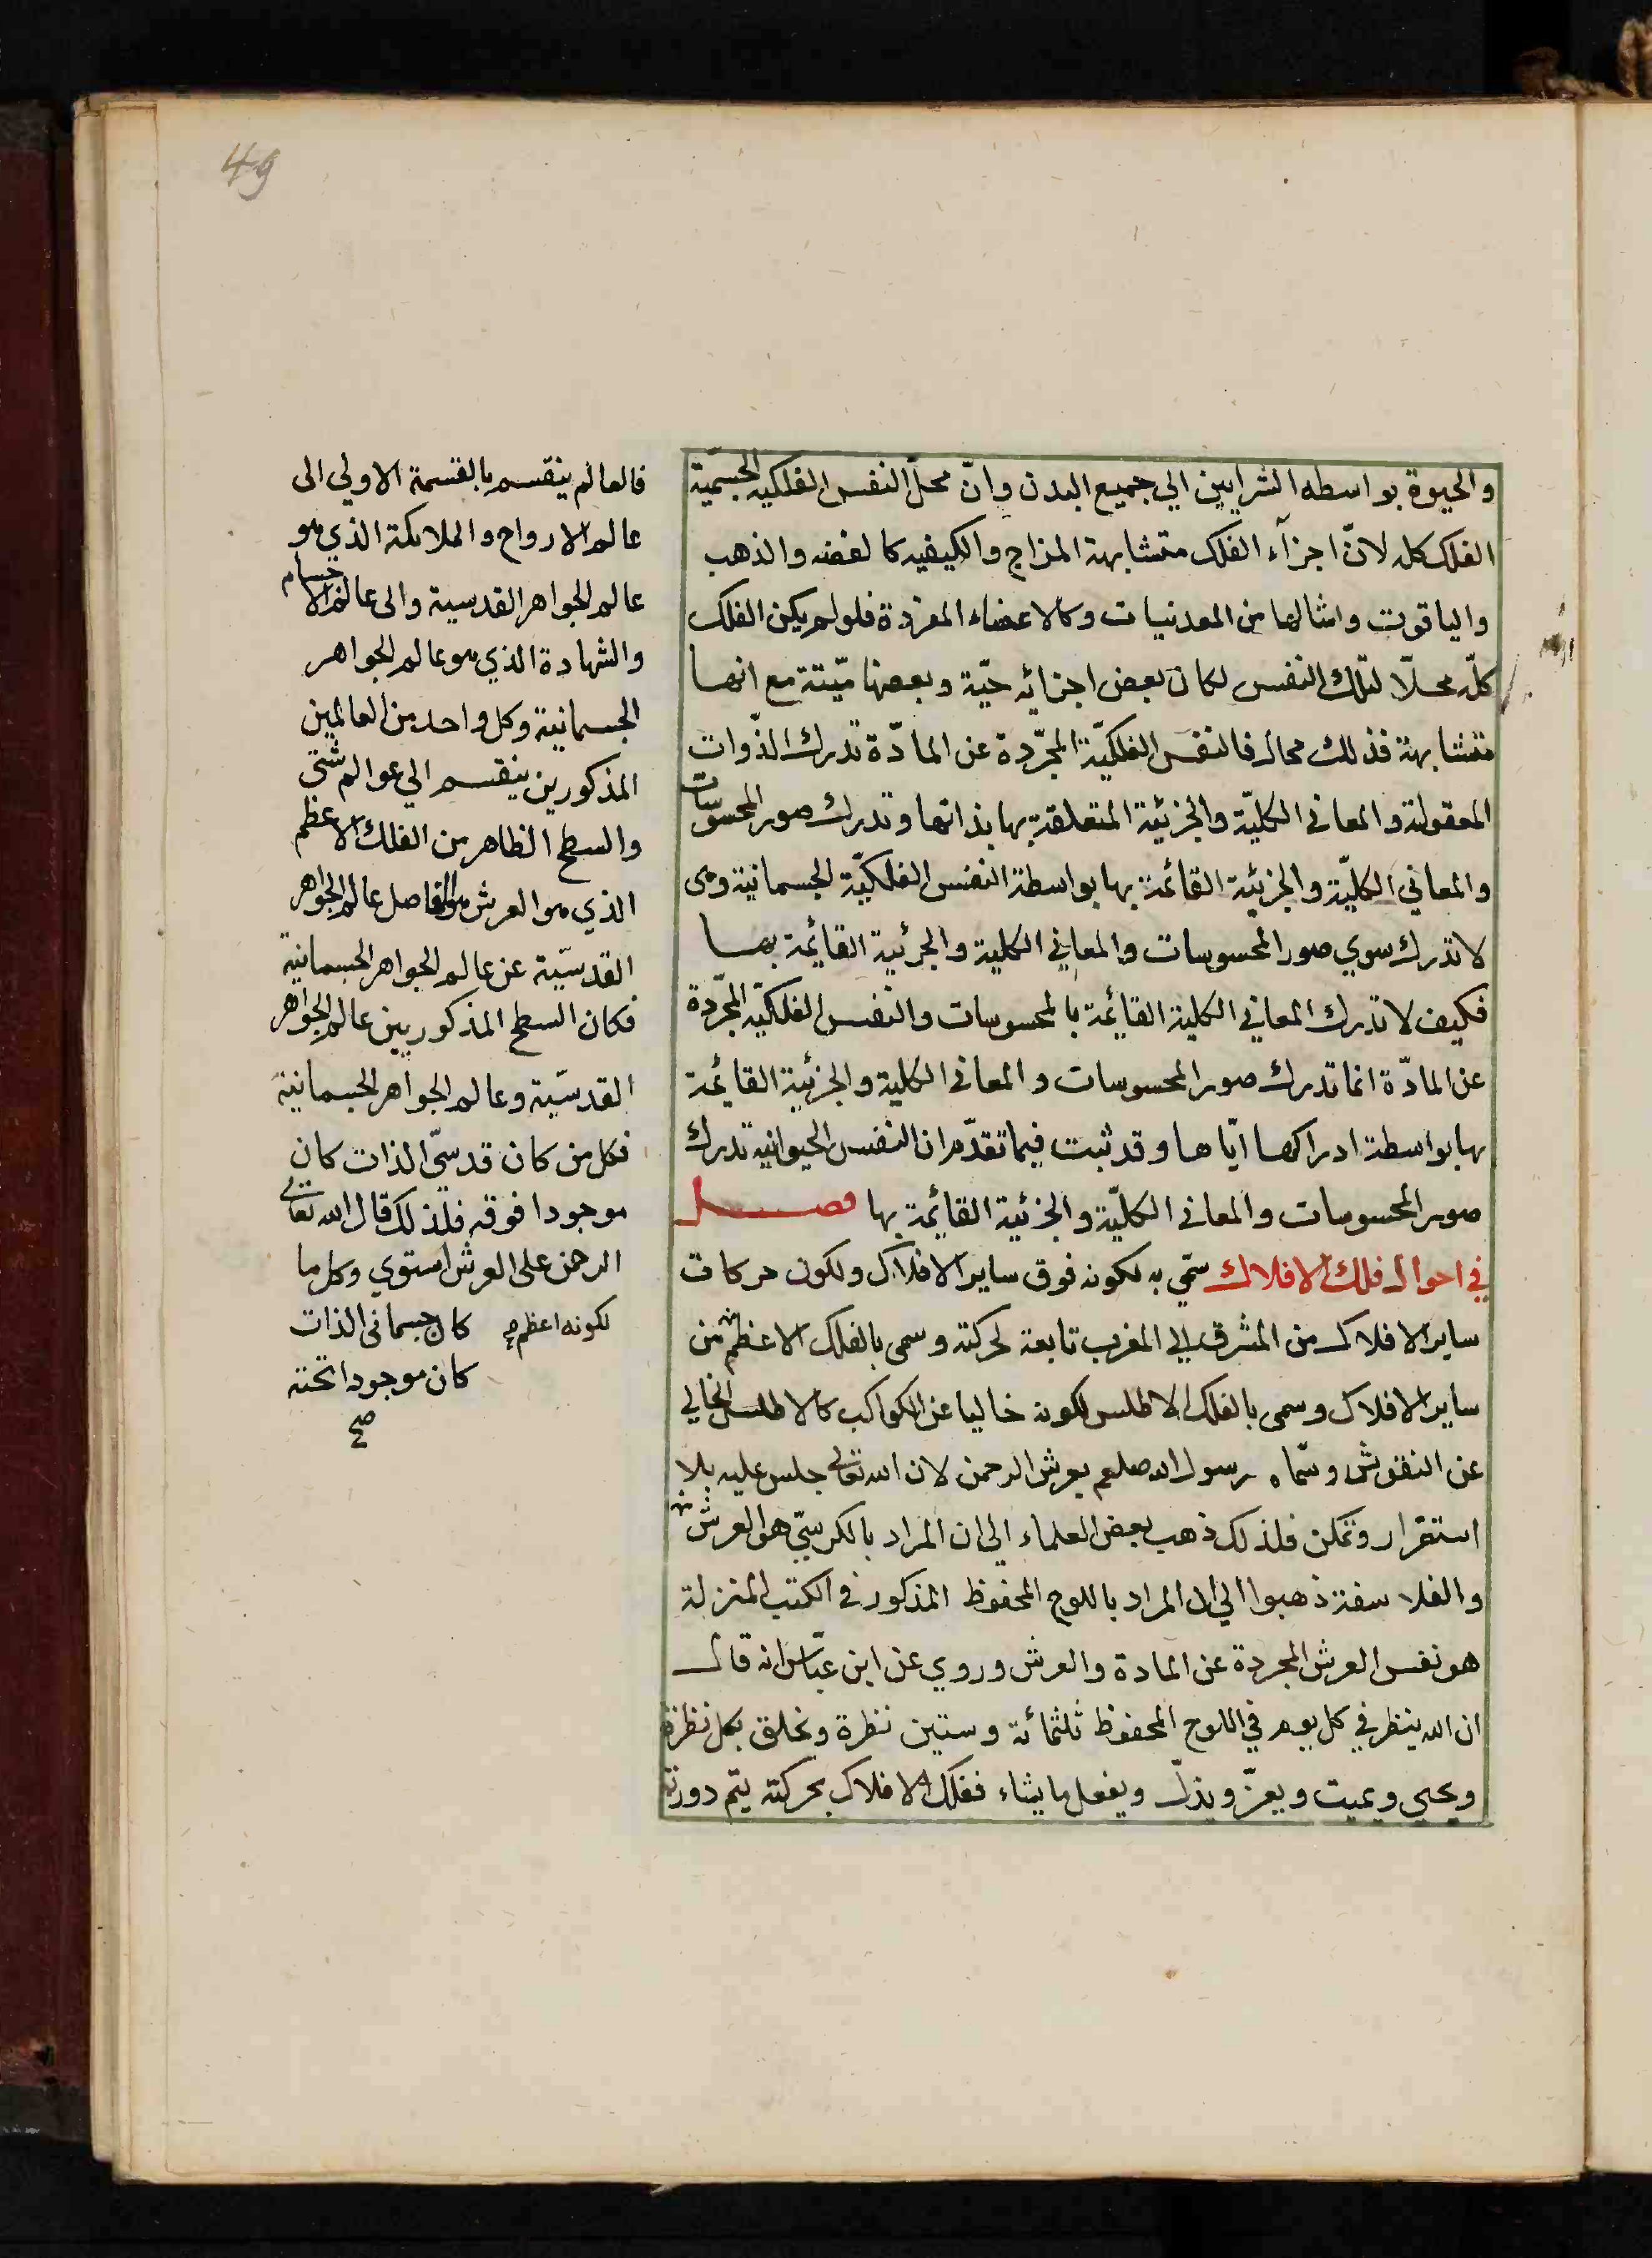 49
والحيوة بواسطه الشرايين الي جميع البدن وانّ محلّ النفس الفلكيه الجسميّة
الفلك كله لانّ اجزآء الفلك متشابهة المزاج والكيفيه كالفضه والذهب
والياقوت وامثالها من المعدنيات وكالاعضاء المفردة فلولم يكن الفلك
كلّه محلّا لتلك النفس لكان بعض اجزائه حيّة وبعضها ميّتة مع انها
متشابهة فذلك محال فالنفس الفلكيّة المجرّدة عن المادّة تدرك الذّوات
المعقولة والمعاني الكليّة والجزئيّة المتعلقة بها بذاتها وتدرك صور المحسوسات
والمعاني الكليّة والجزئية القائمة بها بواسطة النفس الفلكيّة الجسمانية وهى
لا تدرك سوي صور المحسوسات والمعاني الكلية والجزئية القايمة بها
فكيف لا تدرك المعاني الكلية القايمة بالمحسوسات والنفس الفلكيّة المجّردة
عن المادّة انما تدرك صور المحسوسات والمعاني الكلية والجزئية القايمة
بها بواسطة ادراكها ايّاها وقد ثبت فيما تقدّم ان النفس الحيوانية تدرك
صور المحسوسات والمعاني الكليّة والجزئية القائمة بها فصل
في احوال فلك الافلاك سمّي به لكونه فوق ساير الافلاك ولكون حركات
ساير الافلاك من المشرق الي المغرب تابعة لحركته وسمى بالفلك الاعظم من
ساير الافلاك وسمى بالفلك الاطلس لكونه خاليا عن الكواكب كالاطلس الخالي
عن النقوش وسمّاه رسول الله صلعم بعرش الرحمن لان الله تعالى جلس عليه بلا
استقرار وتمكن فلذلك ذهب بعض العلماء الي ان المراد بالكرسيّ هو العرش
والفلاسفة ذهبوا الي ان المراد باللوح المحفوظ المذكور في الكتب المنزلة
هو نفس العرش المجردة عن المادة والعرش وروي عن ابن عبّاس انه قال
ان الله ينظر في كل يوم في اللوح المحفوظ ثلثمائة وستين نظرة ويخلق بكل نظرة
ويحيي ويميت ويعزّ ويذلّ ويفعل ما يشاء ففلك الافلاك بحركته يتمّ دورته
فالعالم ينقسم بالقسمة الاولي الى
عالم الارواح والملائكة الذي هو
عالم الجواهر القدسية والى عالم الاجسام
والشهادة الذي هو عالم الجواهر
الجسمانية وكل واحد من العالمين
المذكورين ينقسم الي عوالم شتّي
والسطح الظاهر من الفلك الاعظم
الذي هو العرش هو الفاصل عالم الجواهر
القدسيّة عن عالم الجواهر الجسمانية
فكان السطح المذكور بين عالم الجواهر
القدسيّة وعالم الجواهر الجسمانية
فكل من كان قدسيّ الذات كان
موجودا فوقه فلذلك قال الله تعالى
الرحمن على العرش استوي وكل ما
كان جسماني الذات
كان موجودا تحته
صح
لكونه اعظم صح